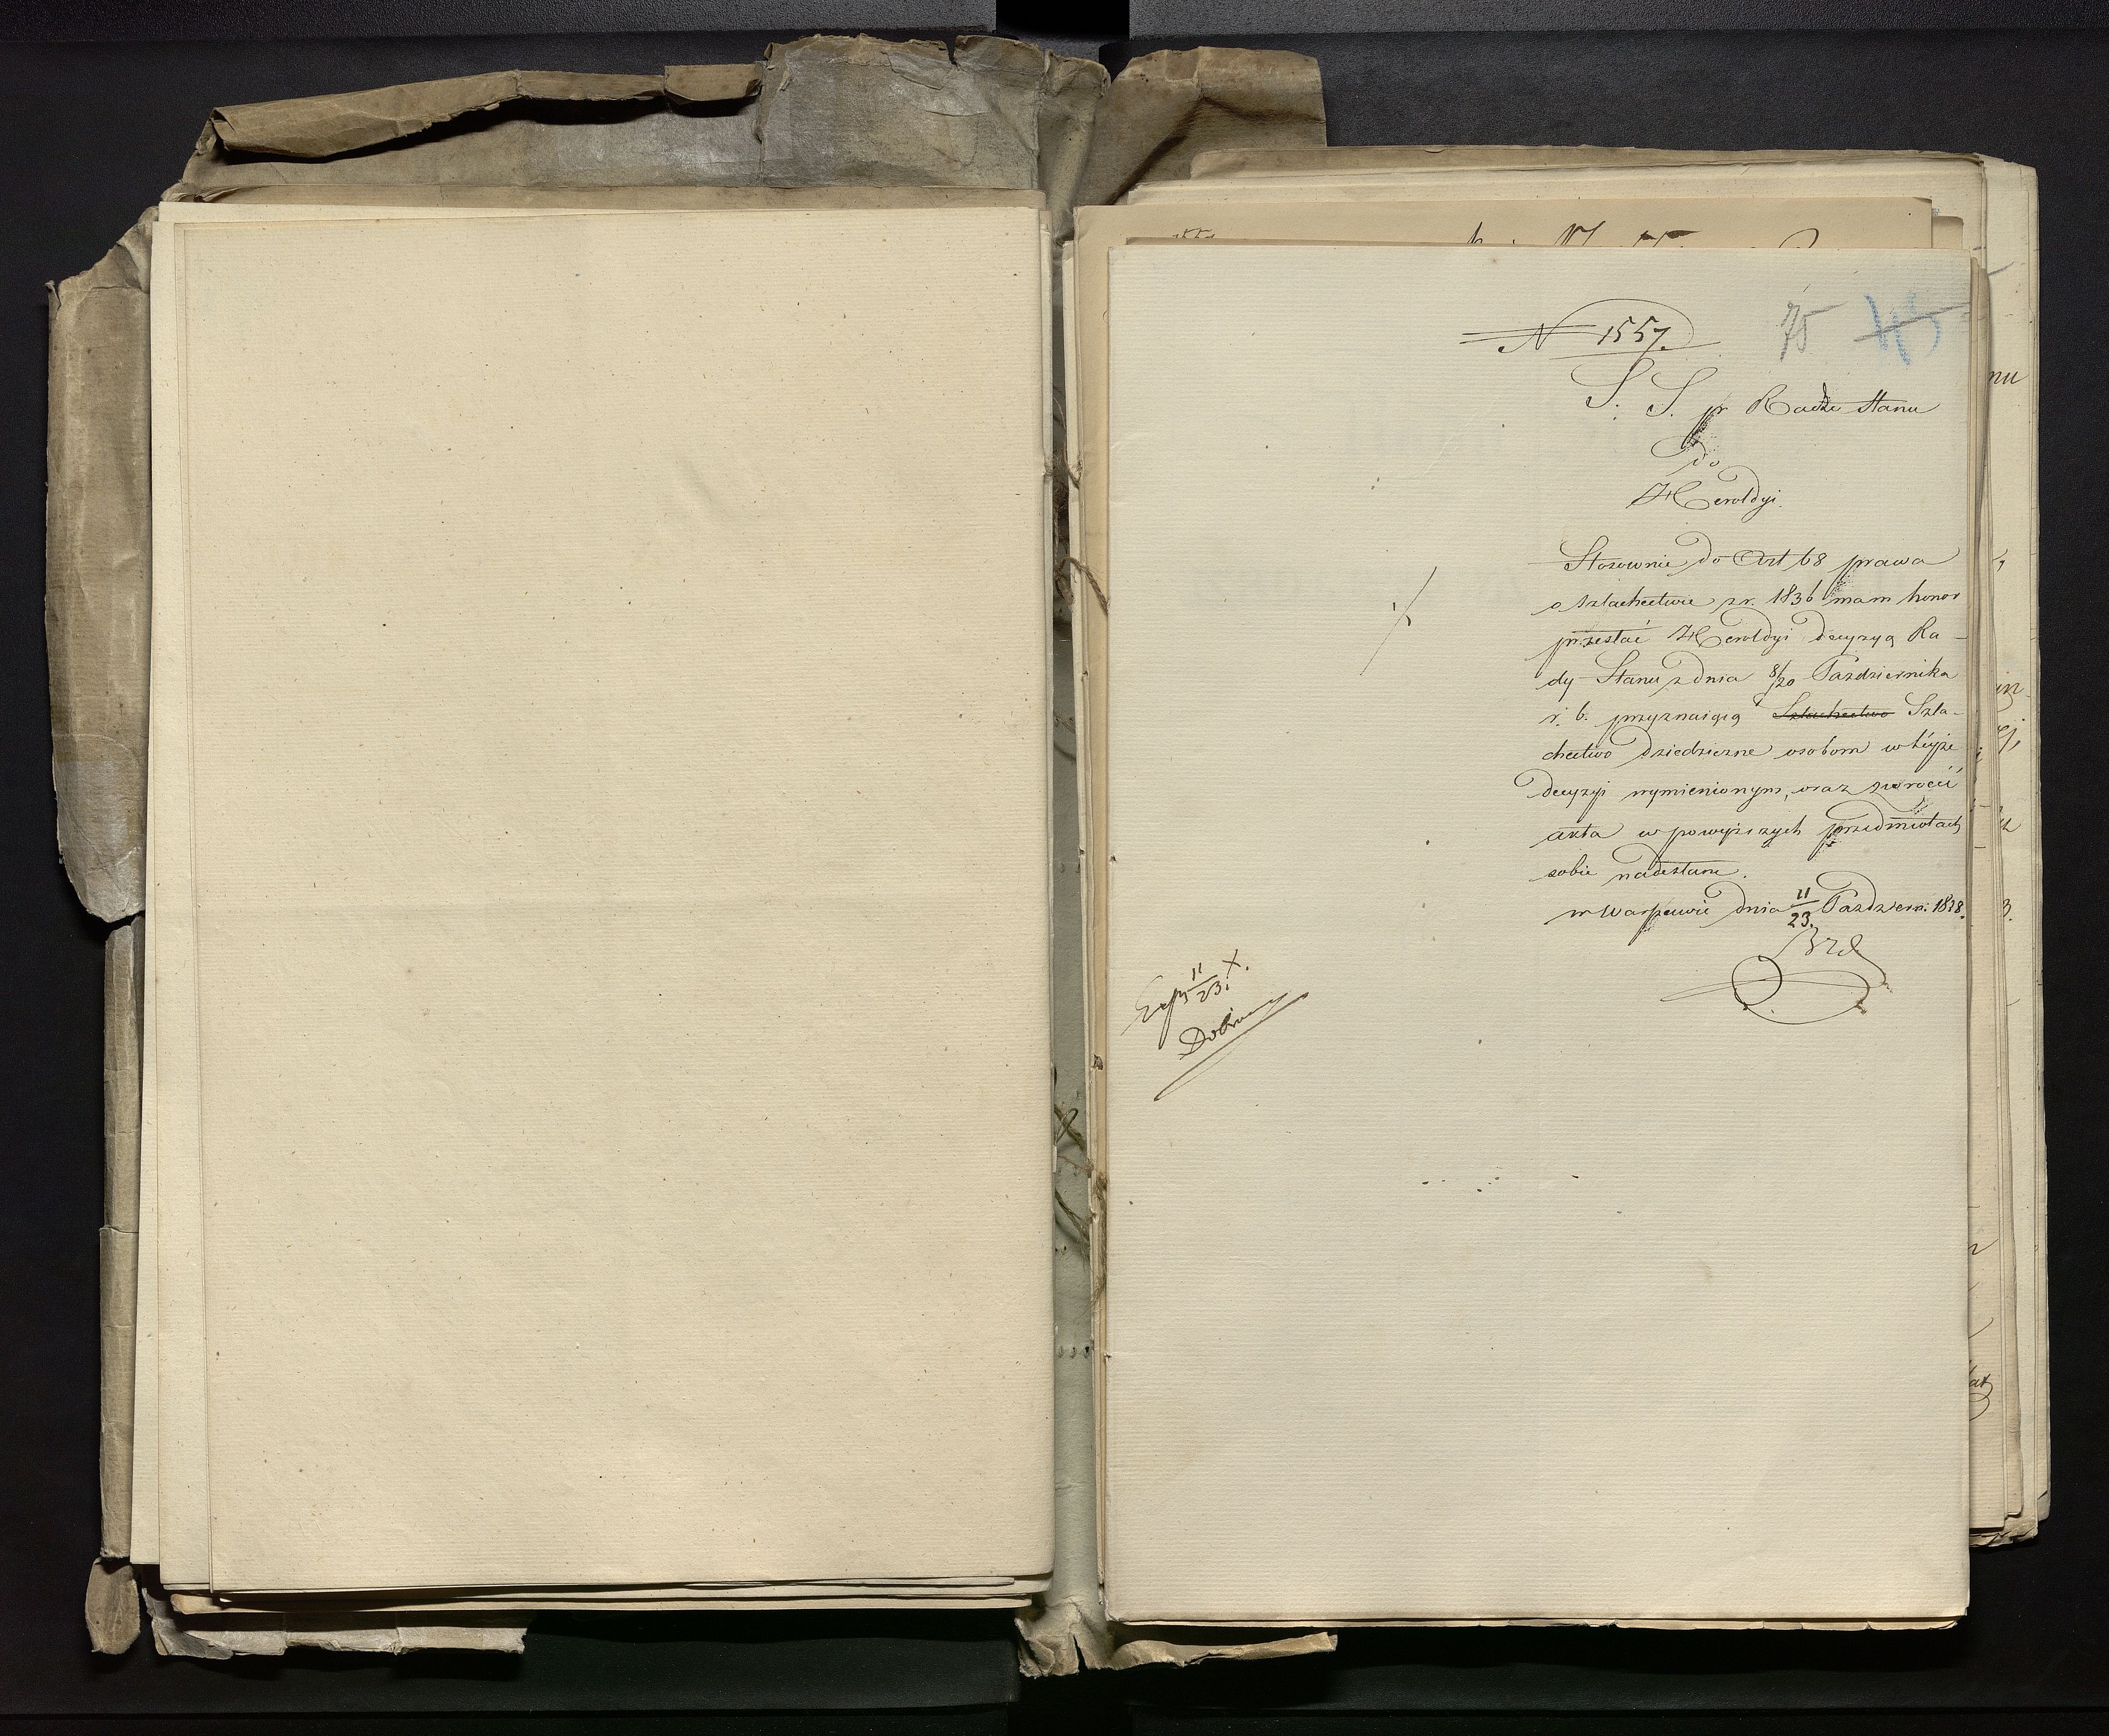 N 1557.
75 45
S. S. pr Radzie Stanu
do
Heroldyi.
Stosownie do Art 68 prawa
o szlachectwie z r. 1836 mam honor
przesłać Heroldyi decyzyą Ra-
dy Stanu z dnia 8/20 Pazdziernika
r. b. przyznaiącą Szlachectwo Szla-
chectwo dziedziczne osobom w teyże
decyzyi wymienionym, oraz zwrócić
akta w powyższych przedmiotach
sobie nadesłane.
w Warszawie dnia 11/23. Pazdziern. 1838.
Exp 11/23 X.